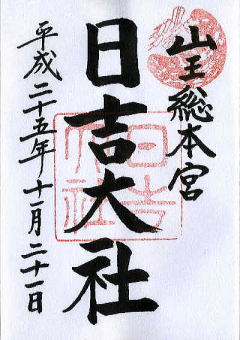 山王総本宮
日吉大社
平成二十五年十一月二十一日